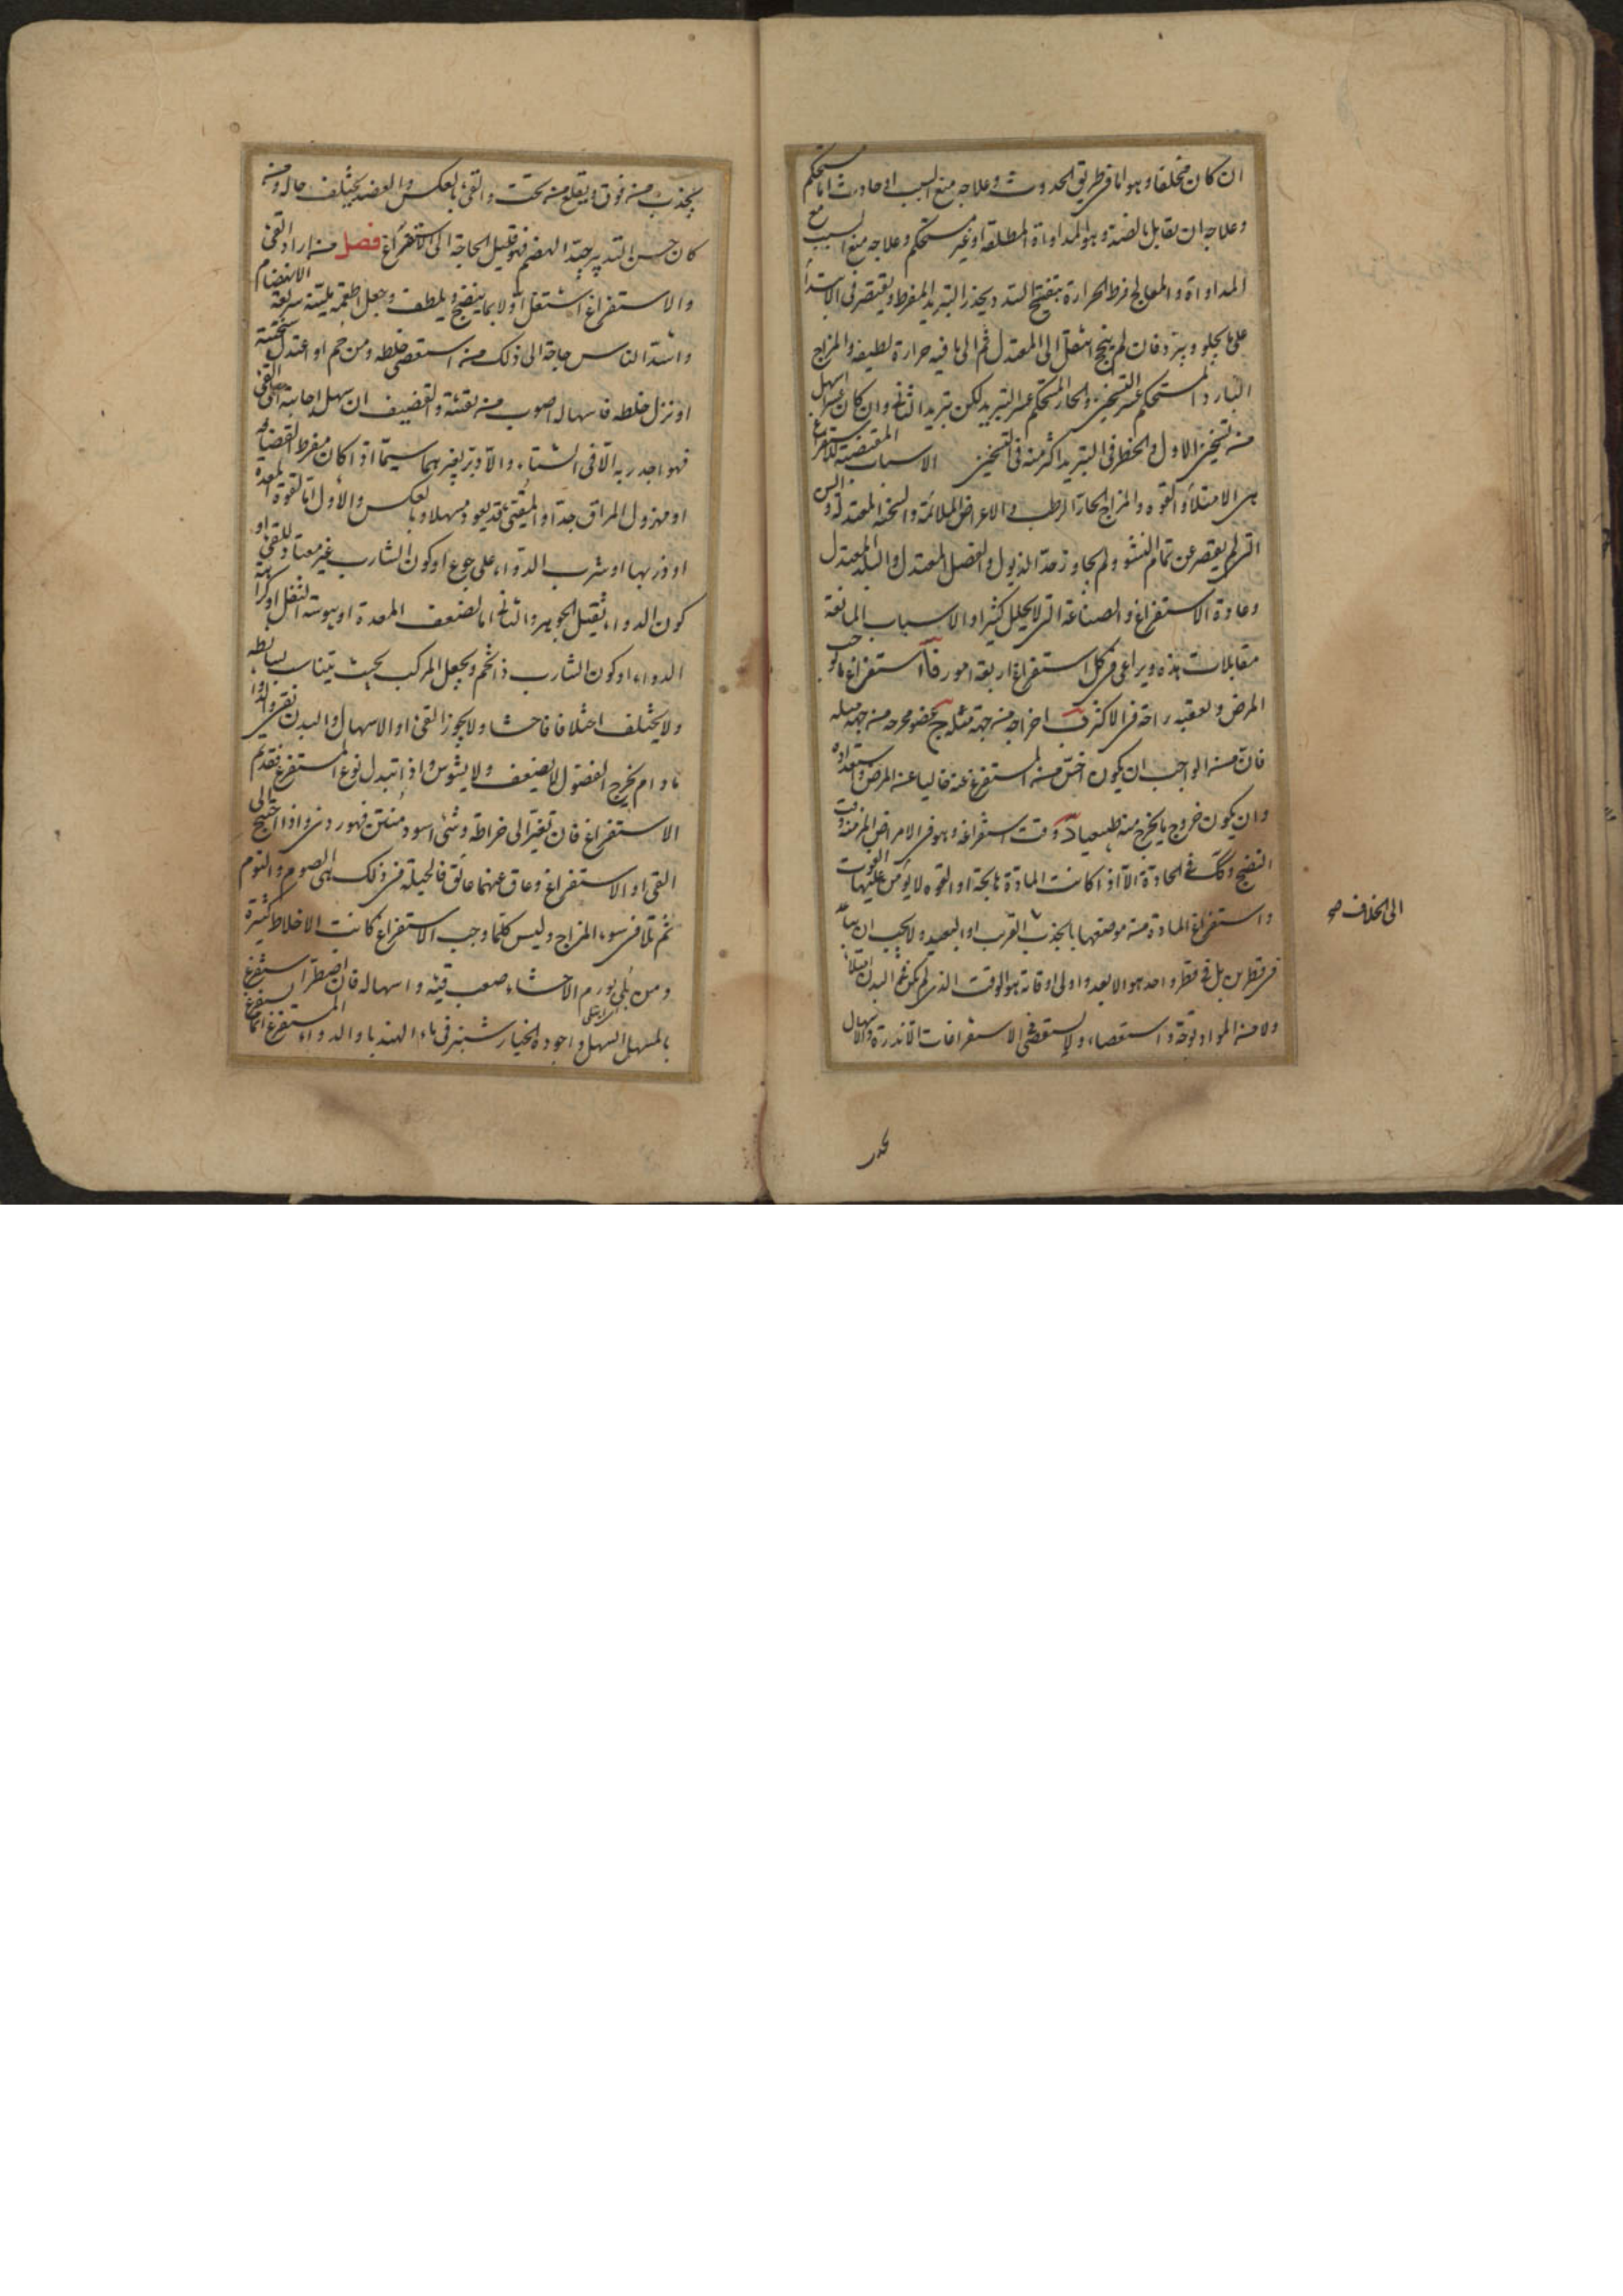 ان كان مختلفا وهو اما فى طريق الحدوث وعلاجه منع السبب او حادث اما مستحكم
وعلاجه ان يقابل بالضد وهو المداواة المطلقة او غير مستحكم وعلاجه منع السبب مع
المداواة والمعالج فرط الحرارة بتفتيح السدد ويحذر التبريد المفرط ويقتصر فى الابتداء
على ما يجلو ويبرد فان لم ينجح انتقل الى المعتدل ثم الى ما فيه حرارة لطيفة والمزاج
البارد المستحكم عسر التسخين والحار المستحكم عسر التبريد لكن تبريد الثانى وان كان اسهل
من تسخين الاول فالخطر فى التبريد اكثر منه فى التسخين الاسباب المقتضية للاستفراغ
هى الامتلاء والقوة والمزاج الحار الرطب والاعراض الملائمة والسحنة المعتدلة والسن
التى لم يقصر عن تمام النشو ولم يجاوز حد الذبول والفصل المعتدل والبلد المعتدل
وعادة الاستفراغ والصناعة التى لا يحلل كثيرا والاسباب المانعة
مقابلات هذه ويراعى فى كل استفراغ اربعة امور آ استفراغ ما يوجب
المرض ويعقبه راحة فى الاكثر ب اخراجه من جهة ميله ج عضو مخرجه من جهة ميله
فان من الواجب ان يكون اخس من المستفرغ عنه خاليا عن المرض واستعداده
وان يكون خروج ما يخرج منه طبيعيا د وقت استفراغه وهو فى الامراض المزمنة وقت
النضج وكذلك فى الحادة الا اذا كانت المادة هايجة او القوة لا يؤمن عليها الفوات
واستفراغ المادة من موضعها بالجذب القريب او البعيد ولا يجب ان يباعد
فى قطرين بل فى قطر واحد هو الابعد واولى اوقاته هو الوقت الذى لم يكن فى البدن امتلاء
ولا من المواد توجه واستقصاء ولا يستقصى الاستفراغات الا نادرة والاسهال
الى الخلاف صح
يجذب من فوق ويقلع من تحت والقى بالعكس والفصد يختلف حاله ومن
كان حسن التدبير جيد الهضم فهو قليل الحاجة الى الاستفراغ فصل من اراد القى
والاستفراغ اشتغل اولا بما ينضج ويلطف وجعل اطعمته لينة سريعة الانهضام
واشد الناس حاجة الى ذلك من استعصى خلطه ومن حم او اعتدل سحنته
او نزل خلطه فاسهاله اصوب من تقيئه والقضيف ان سهل اجابته الى القى
فهو اجدر به الا فى الشتاء والا دبر بغيرهما سيما اذا كان مفرط القضافة
او مهزول المراق جدا والمقيئ قد يعود مسهلا وبالعكس والاول اما لقوة المعدة
او ذربها او شرب الدواء على جوع او كون الشارب غير معتاد للقى او
كون الدواء ثقيل الجوهر والثانى اما لضعف المعدة او يبوسة الثفل او كراهة
الدواء او كون الشارب ذا تخم ويجعل المركب بحيث يتناسب بسائطه
ولا يختلف اختلافا فاحشا ولا يجوز القى او الاسهال والبدن نقى والدواء
ما دام يخرج الفضول لا يضعف ولا يشوش واذا تبدل نوع المستفرغ فقد تم
الاستفراغ فان تغير الى خراطة وشئ اسود منتن فهو ردى واذا احتيج الى
القى او الاستفراغ وعاق عنهما عائق فالحيلة فى ذلك الى الصوم والنوم
ثم تلافى سوء المزاج وليس كلما وجب الاستفراغ كانت الاخلاط كثيرة
ومن بلى بورم الاحشاء صعب قيئه واسهاله فان اضطر استفرغ
بالمسهل السهل واجوده الخيارشنبر فى ماء الهندبا والدواء المستفرغ